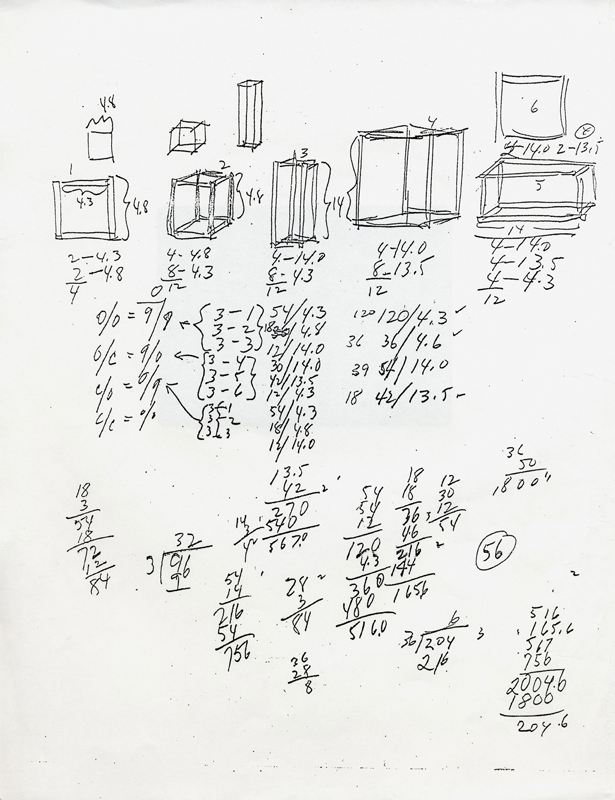 4.8
6
4-14.0 2-13.5
1
2
3
4
5
4.3
4.8
4.8
14
14
2-4.3
2-4.8
4
4-4.8
8-4.3
12
4-14.0
8-4.3
12
4-14.0
8-13.5
12
4-14.0
4-13.5
4-4.3
12
3-1
3-2
3-3
3-4
3-5
3-6
54/4.3
18/4.8
12/14.0
30/14.0
42/13.5
12/4.3
54/4.3
18/4.8
12/14.0
120 120/4.3
36 36/4.6
39 54/14.0
18 42/13.5
18
3
54
18
72
12
84
32
3 96
9
13.5
42
270
540
567.0
54
14
216
54
756
28
3
84
36
28
8
54
54
12
120
4.3
360
480
516.0
18
18
36
46
216
144
1656
12
30
12
54
36
50
1800
56
6
36 204 3
216
516
165.6
567
756
2004.6
1800
204.6